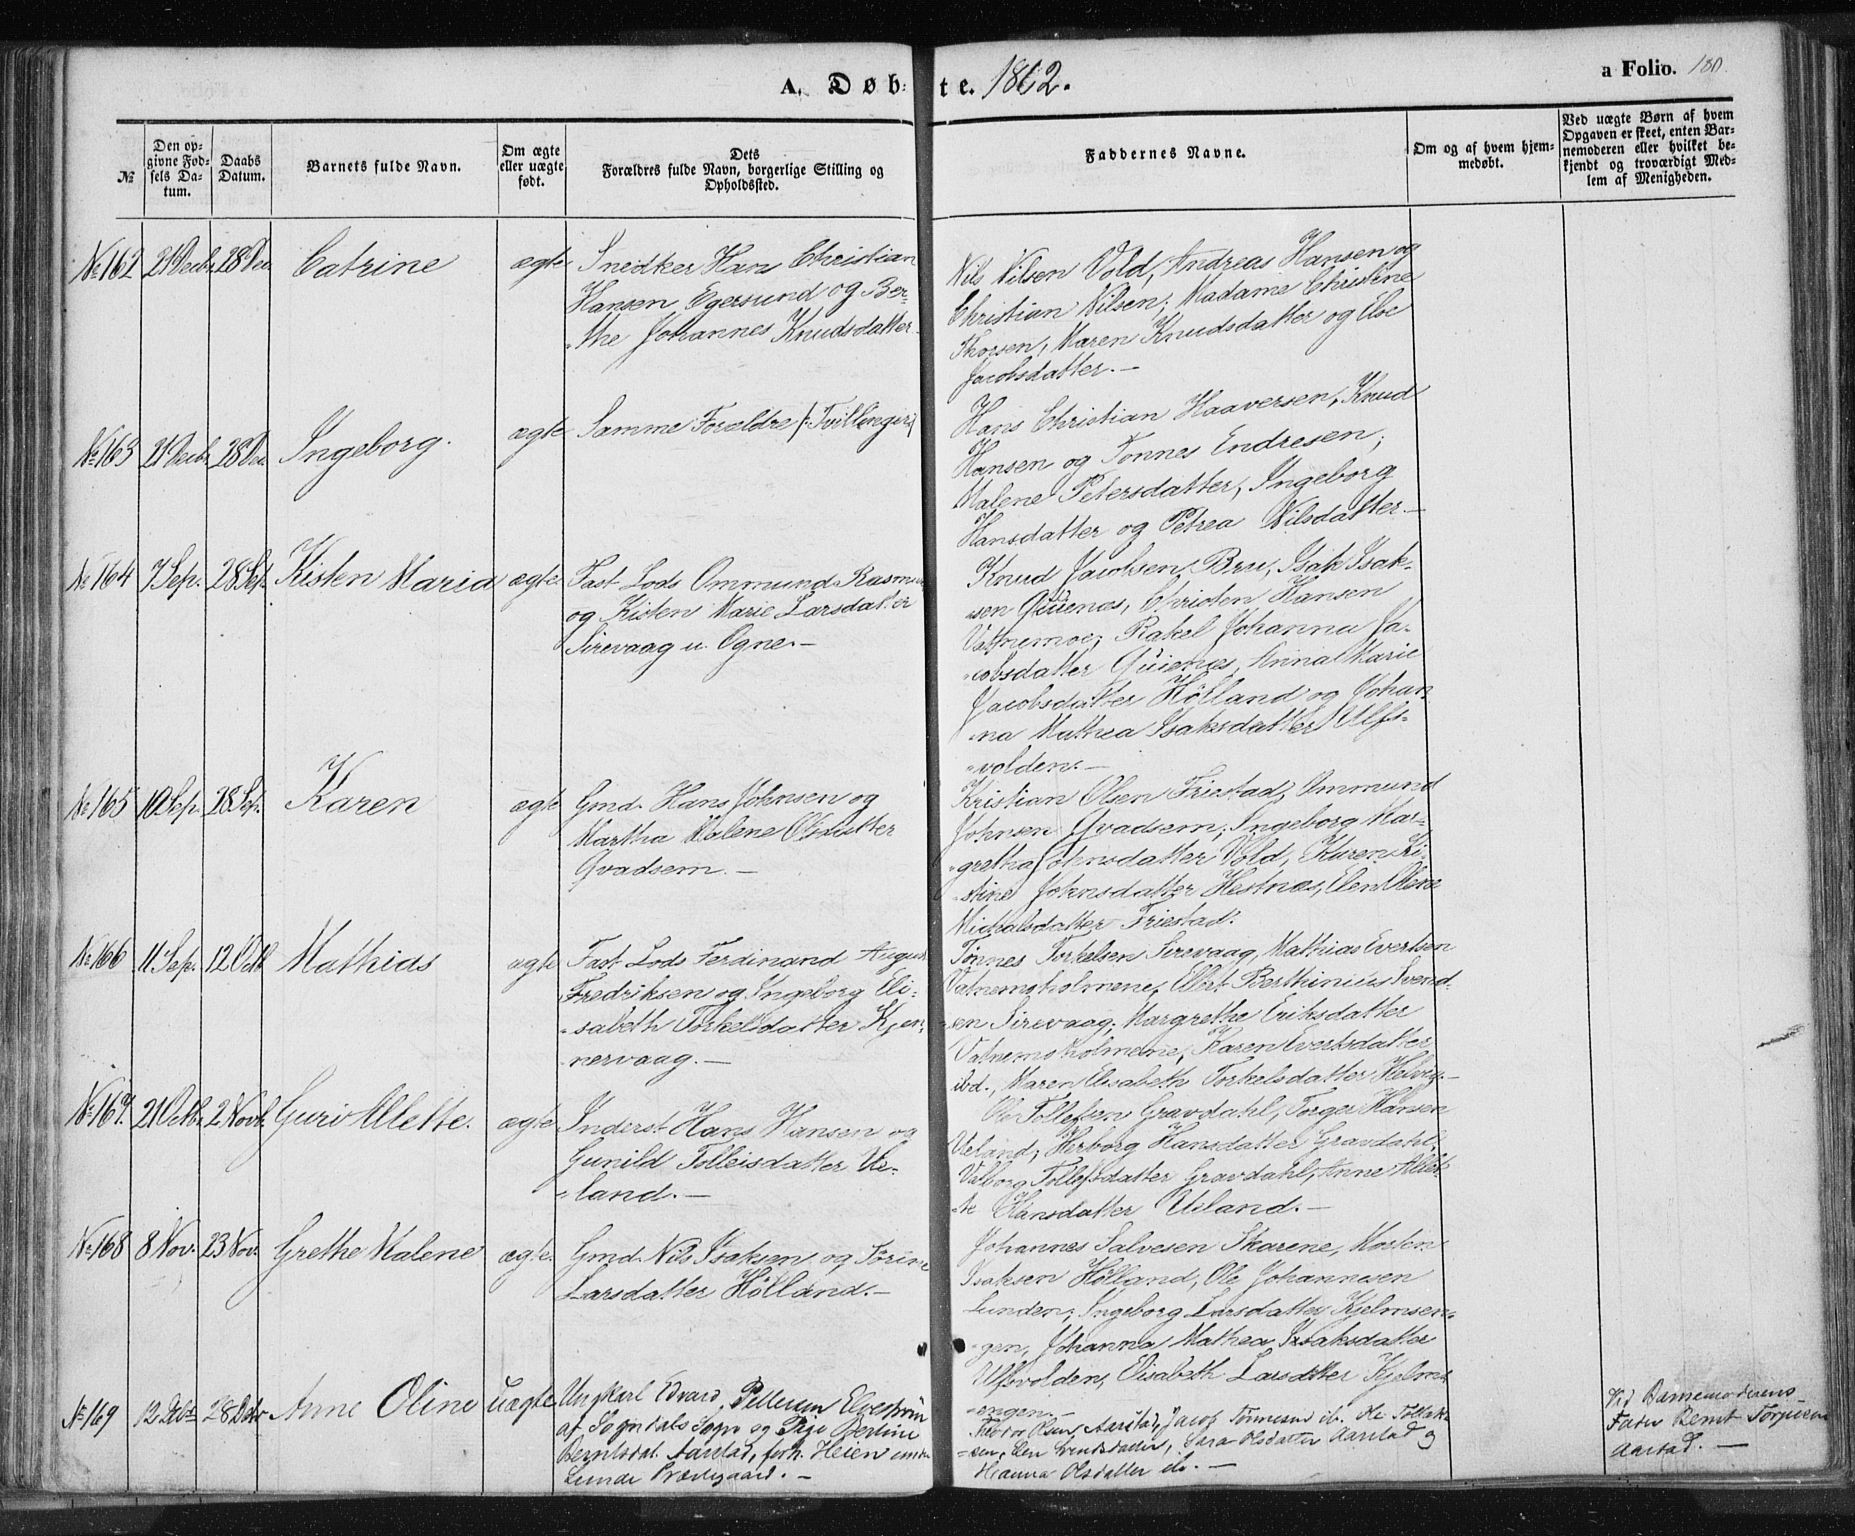 A. Døbte. 1862.
a Folio. 180
№
Den opgivne Fødsels Datum.
Daabs Datum.
Barnets fulde Navn.
Om ægte eller uægte født.
Dets Forældres fulde Navn, borgerlige Stilling og Opholdssted.
Faddernes Navne.
Om og af hvem hjemmedøbt.
Ved uægte Børn af hvem Opgaven er skeet, enten Barnemoderen eller hvilket bekjendt og troværdigt Medlem af Menigheden.
№ 162 21 Decbr 28 Dec Catrine ægte
Snedker Hans Christian
Hansen Egersund og Ber-
the Johannes Knudsdatter
Nils Nilsen Vold, Andreas Hansen og
Christian Nilsen; Madame Christine
Thorsen, Maren Knudsdatter og
Jacobsdatter. —
№ 163 21 Decbr 28 Dec. Ingeborg. ægte
Samme Forældre (: Tvillinger)
Hans Christian Haaversen, Knud
Hansen og Tønnes Endresen;
Malene Petersdatter, Ingeborg
Hansdatter og Petrea Nilsdatter. —
№ 164 7 Sep. 28 Sep. Kisten Maria ægte
Fast Lods Ommund Rasm
og Kisten Marie Larsdatter
Sirevaag u. Ogne. —
Knud Jacobsen Bru, Isak Isak-
sen Quienes, Christen Hansen
Vatnemoe; Rakel Johanna Ja-
cobsdatter Quienes, Anna Marie
Jacobsdatter Hölland og Johan-
na Mathea Isaksdatter Ulfs-
volden. —
№ 165 10 Sep. 28 Sep. Karen ægte
Gmd. Hans Johnsen og
Martha Malene Olsdatter
Qvadsem. —
Kristian Olsen Friestad, Ommund
Johnsen Qvadsem; Ingeborg Mar-
gretha Johnsdatter Vold, Karen Ki-
stine Johnsdatter Hestnes, Elen Oline
Michalsdatter Friestad.
№ 166 11 Sep. 12 Octb. Mathias ægte
Fast Lods Ferdinand August
Fredriksen og Ingeborg Eli-
sabeth Torkelsdatter Kjen-
nervaag. —
Tønnes Torkelsen Sirevaag, Mathias Evertsen
Vatnemoholmene, Ellert Berthinius Svend-
sen Sirevaag; Margrethe Eriksdatter
Vatnemoholmene, Karen Evertsdatter
ibd., Maren Elisabeth Torkelsdatter
№ 167. 21 Octb. 2 Novb. Guri Allette. ægte
Inderst Hans Hansen og
Gunild Tolleisdatter Ue-
land. —
Ole Tollefsen Gravdahl, Torger Hansen
Ueland; Herborg Hansdatter Gravdahl,
Valborg Tollefsdatter Gravdahl, Anne Allet-
te Hansdatter Ueland. —
№ 168 8 Nov. 23 Nov. Grethe Malene ægte.
Gmd. Nils Isaksen og Torine
Larsdatter Hölland. —
Johannes Salvesen Skarene, Morten
Isaksen Hölland, Ole Johannesen
Lunden; Ingeborg Larsdatter Kjelmsen-
gen, Johanna Mathea Isaksdatter
Ulfsvolden, Elisabeth Larsdatter Kjelms-
engen. —
№ 169 12 28 Anne Oline uægte
Ungkarl Edvard Pettersen
af Sogndals Sogn og Pige Bertine
Berntsdat. Aarstad, forh. Heien under
Lunde Præstegaard. —
Theodor Olsen Aarstad, Jacob Tønnesen ib. Ole Tollak-
sen, Elen Svendsdatter, Sara Olsdatter Aarstad og
Hanna Olsdatter ib. —
Ved Barnemoderens
Fader Bernt Torjusen
Aarstad. —